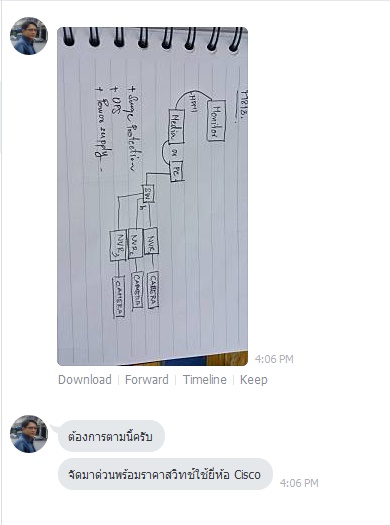 Monitor
HDMI
Media or PC
SW
NVR
CAMERA
NVR2
CAMERA
NVR3
CAMERA
+ Surge Protection
+ UPS
+ Power supply -
4:06 PM
Download Forward Timeline Keep
ต้องการตามนี้ครับ
จัดมาด่วนพร้อมราคาสวิทช์ใช้ยี่ห้อ Cisco
4:06 PM